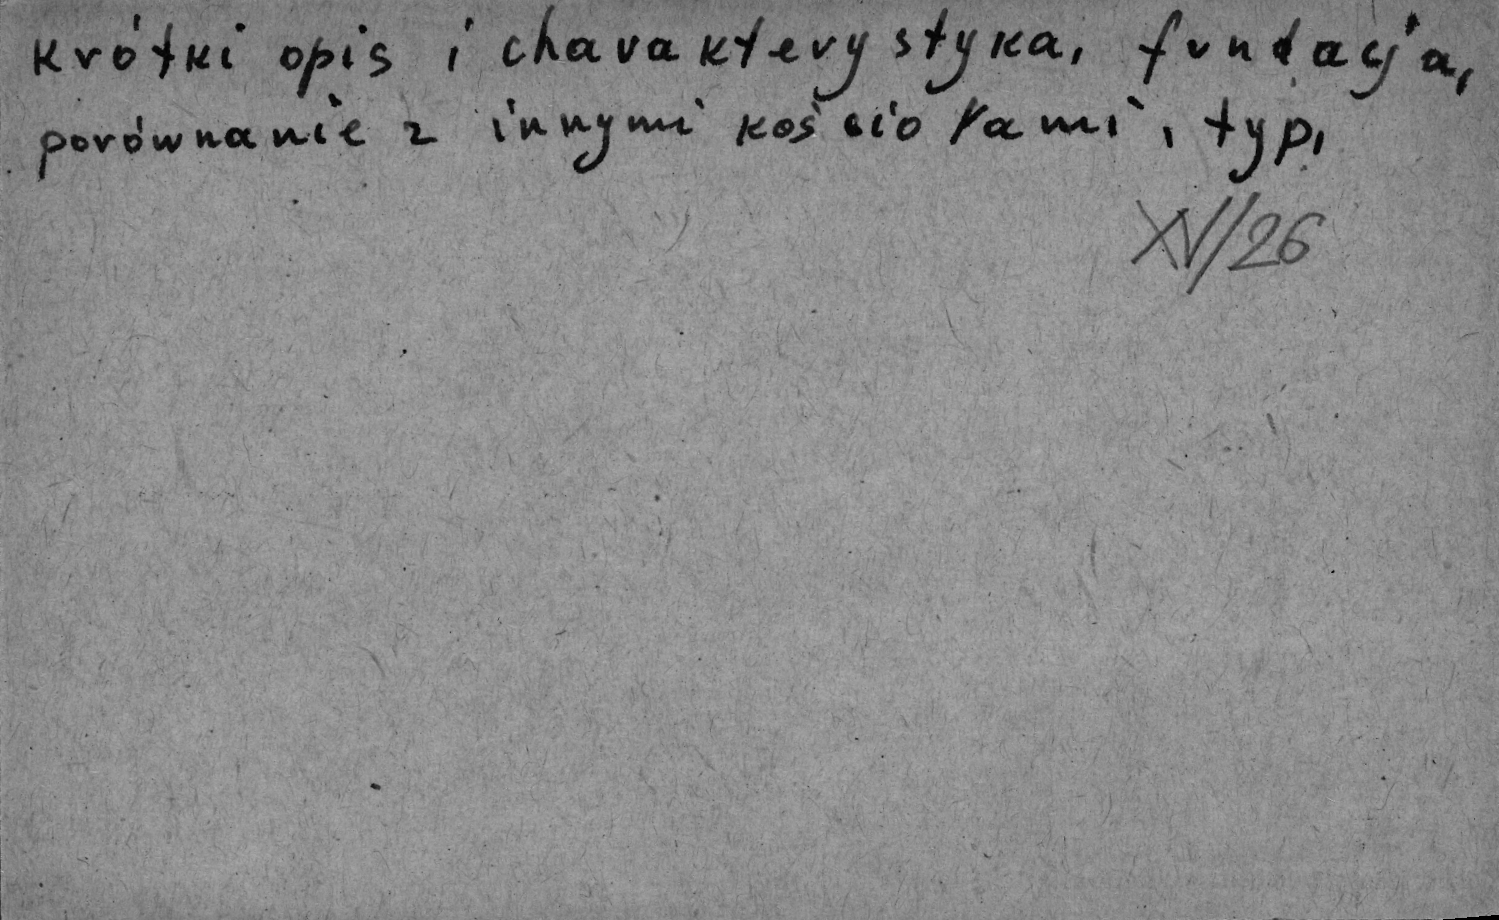 Krótki opis i charakterystyka, fundacja,
porównanie z innymi kościołami, typ,
XV/26